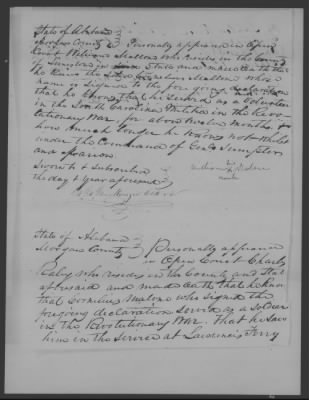 State of Alabama
Morgan County } Personally appeared in Open
Court William Mallone who resides in the County
of in State and maketh oath that
he knows the Cornelius Mallone whose
name is Signed to the fore going declaration
that he knows that he Served as a Volunteer
in the South Carolina Militia in the Revo-
lutionary War for above twelve Months, &
how much longer he Knows not which
under the Command of Genls Sumpter
and Marion.
Sworn to & Subscribed William
the day & year aforesaid mark

State of Alabama
Morgan County } Personally appeared
in Open Court Charles
Raby who resides in the County and State
aforesaid and made Oath that he knows
that Cornelius Malone who signed the
foregoing declaration served as a Soldier
in the Revolutionary War. That he saw
him in the service at Ferry